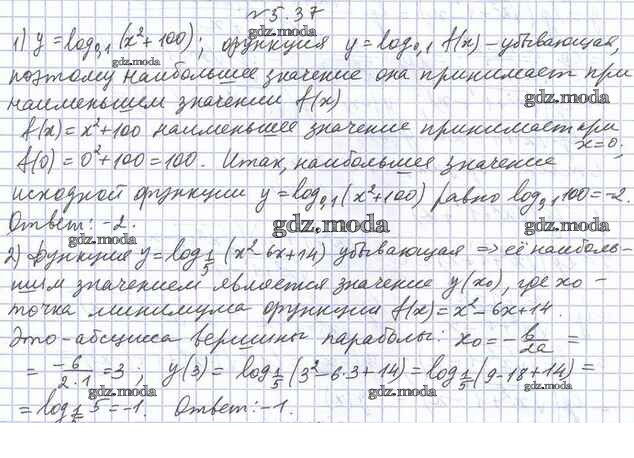 № 5.37
1) y = log₀,₁ (x² + 100); функция y = log₀,₁ f(x) – убывающая,
поэтому наибольшее значение она принимает при
наименьшем значении f(x)
f(x) = x² + 100 наименьшее значение принимает при x = 0.
f(0) = 0² + 100 = 100. Итак, наибольшее значение
исходной функции y = log₀,₁ (x² + 100) равно log₀,₁ 100 = -2.
Ответ: -2.
2) Функция y = log_{1/5} (x² - 6x + 14) убывающая => её наиболь-
шим значением является значение y(x₀), где x₀ –
точка минимума функции f(x) = x² - 6x + 14.
Это – абсцисса вершины параболы: x₀ = - b/2a =
= -6/2·1 = 3; y(3) = log_{1/5} (3² - 6·3 + 14) = log_{1/5} (9 - 18 + 14) =
= log_{1/5} 5 = -1. Ответ: -1.
gdz.moda
gdz.moda
gdz.moda
gdz.moda
gdz.moda
gdz.moda
gdz.moda
gdz.moda
gdz.moda
gdz.moda